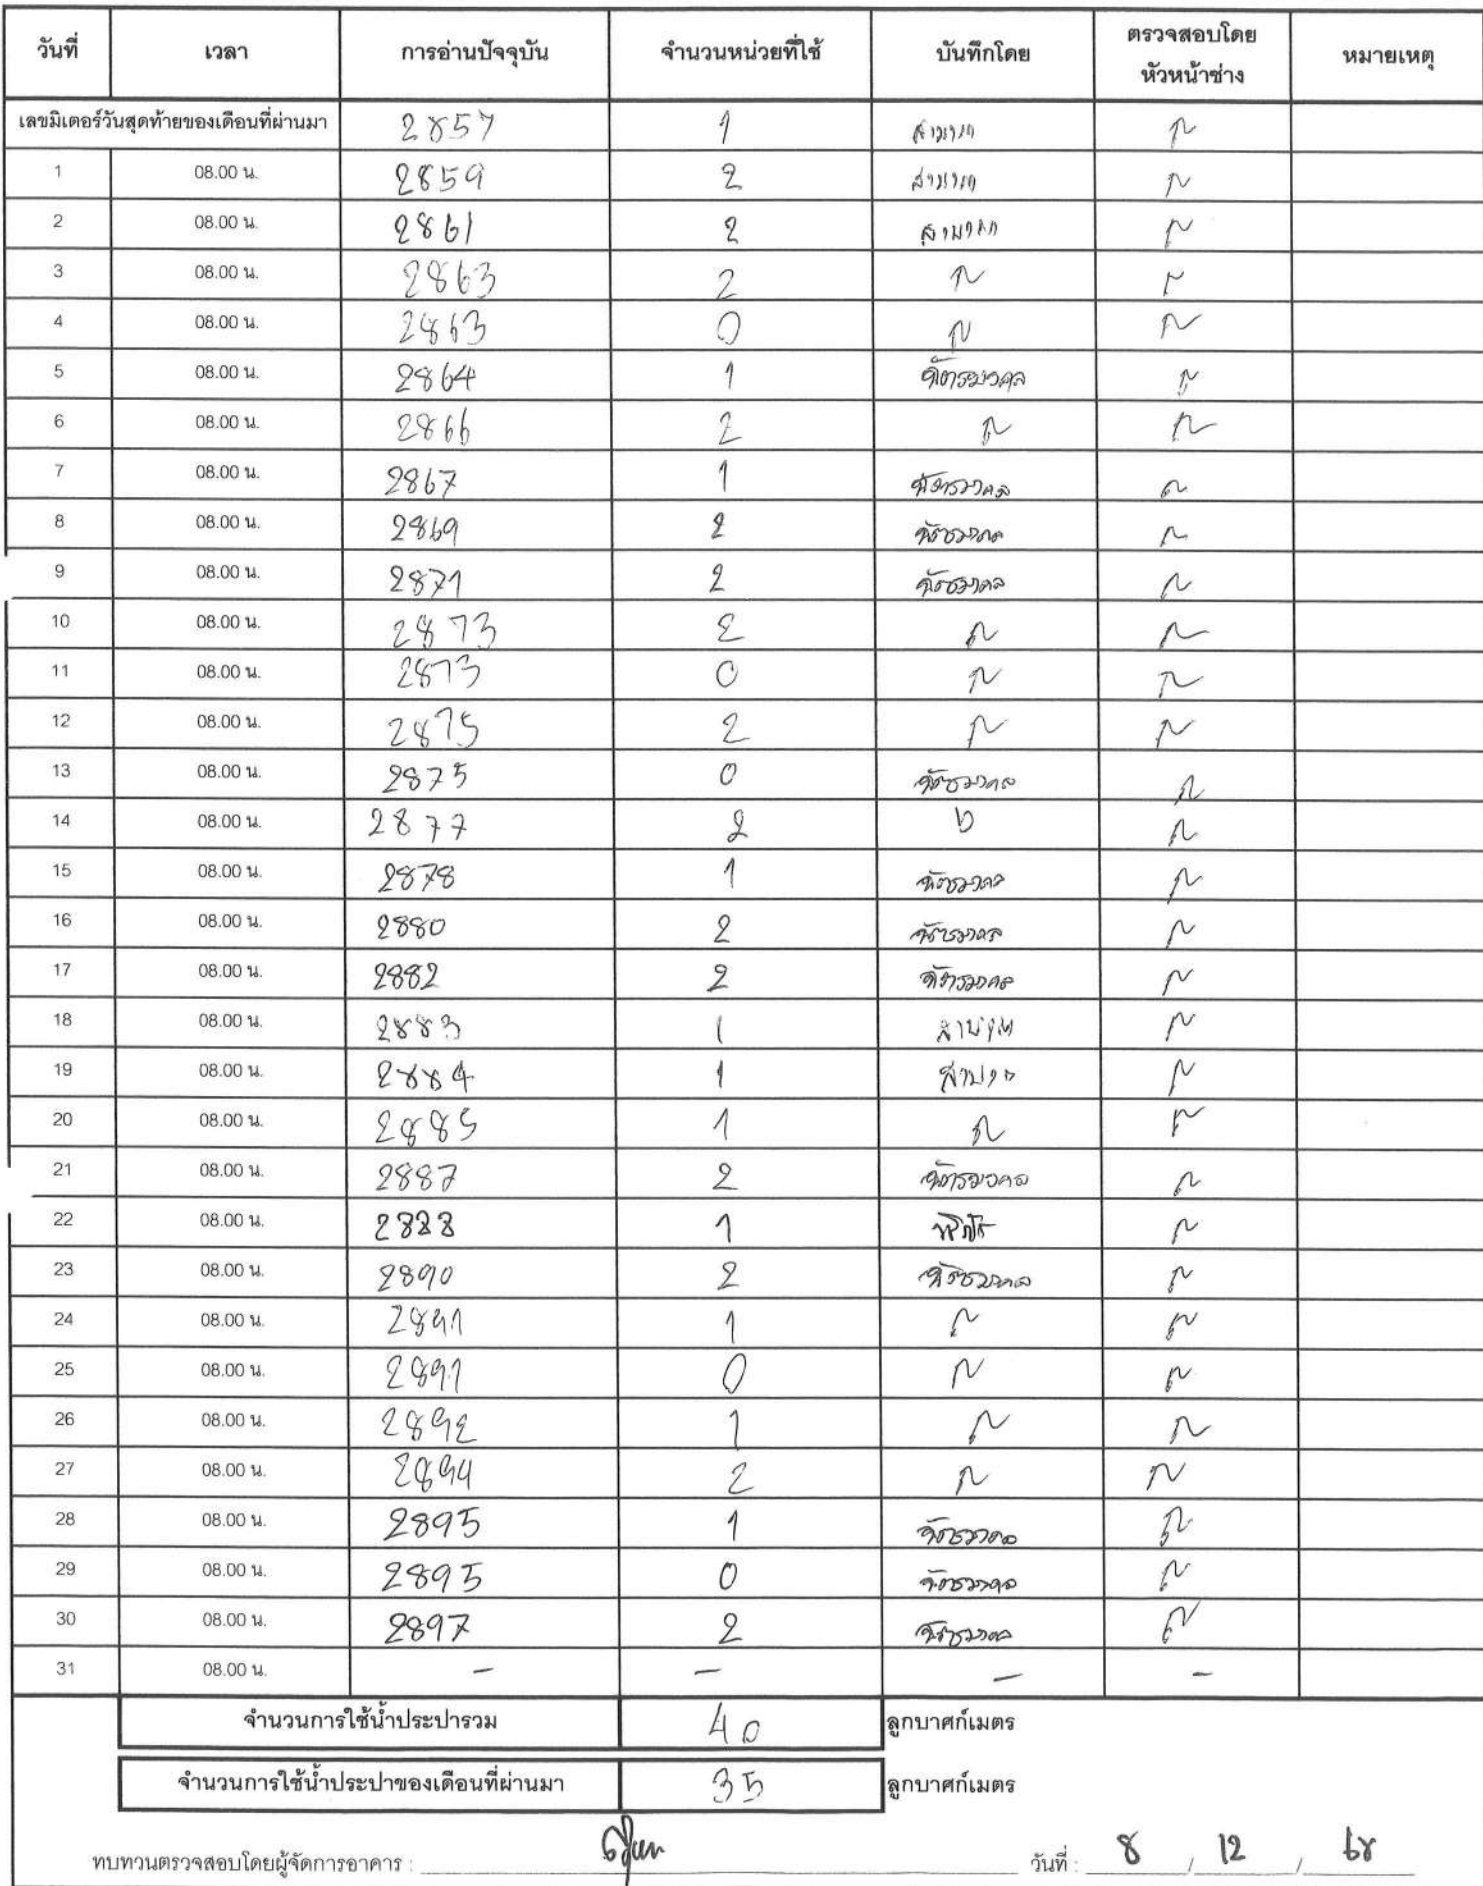 วันที่ เวลา การอ่านปัจจุบัน จำนวนหน่วยที่ใช้ บันทึกโดย ตรวจสอบโดย หัวหน้าช่าง หมายเหตุ
เลขมิเตอร์วันสุดท้ายของเดือนที่ผ่านมา 2857 1
1 08.00 น. 2859 2
2 08.00 น. 2861 2
3 08.00 น. 2863 2
4 08.00 น. 2863 0
5 08.00 น. 2864 1 ฉัตรมงคล
6 08.00 น. 2866 2
7 08.00 น. 2867 1 ฉัตรมงคล
8 08.00 น. 2869 2 ฉัตรมงคล
9 08.00 น. 2871 2 ฉัตรมงคล
10 08.00 น. 2873 2
11 08.00 น. 2873 0
12 08.00 น. 2875 2
13 08.00 น. 2875 0 ฉัตรมงคล
14 08.00 น. 2877 2
15 08.00 น. 2878 1 ฉัตรมงคล
16 08.00 น. 2880 2 ฉัตรมงคล
17 08.00 น. 2882 2 ฉัตรมงคล
18 08.00 น. 2883 1
19 08.00 น. 2884 1
20 08.00 น. 2885 1
21 08.00 น. 2887 2 ฉัตรมงคล
22 08.00 น. 2888 1
23 08.00 น. 2890 2 ฉัตรมงคล
24 08.00 น. 2891 1
25 08.00 น. 2891 0
26 08.00 น. 2892 1
27 08.00 น. 2894 2
28 08.00 น. 2895 1 ฉัตรมงคล
29 08.00 น. 2895 0 ฉัตรมงคล
30 08.00 น. 2897 2 ฉัตรมงคล
31 08.00 น. - - - -
จำนวนการใช้น้ำประปารวม 40 ลูกบาศก์เมตร
จำนวนการใช้น้ำประปาของเดือนที่ผ่านมา 35 ลูกบาศก์เมตร
ทบทวนตรวจสอบโดยผู้จัดการอาคาร : วันที่ : 8 / 12 / 68